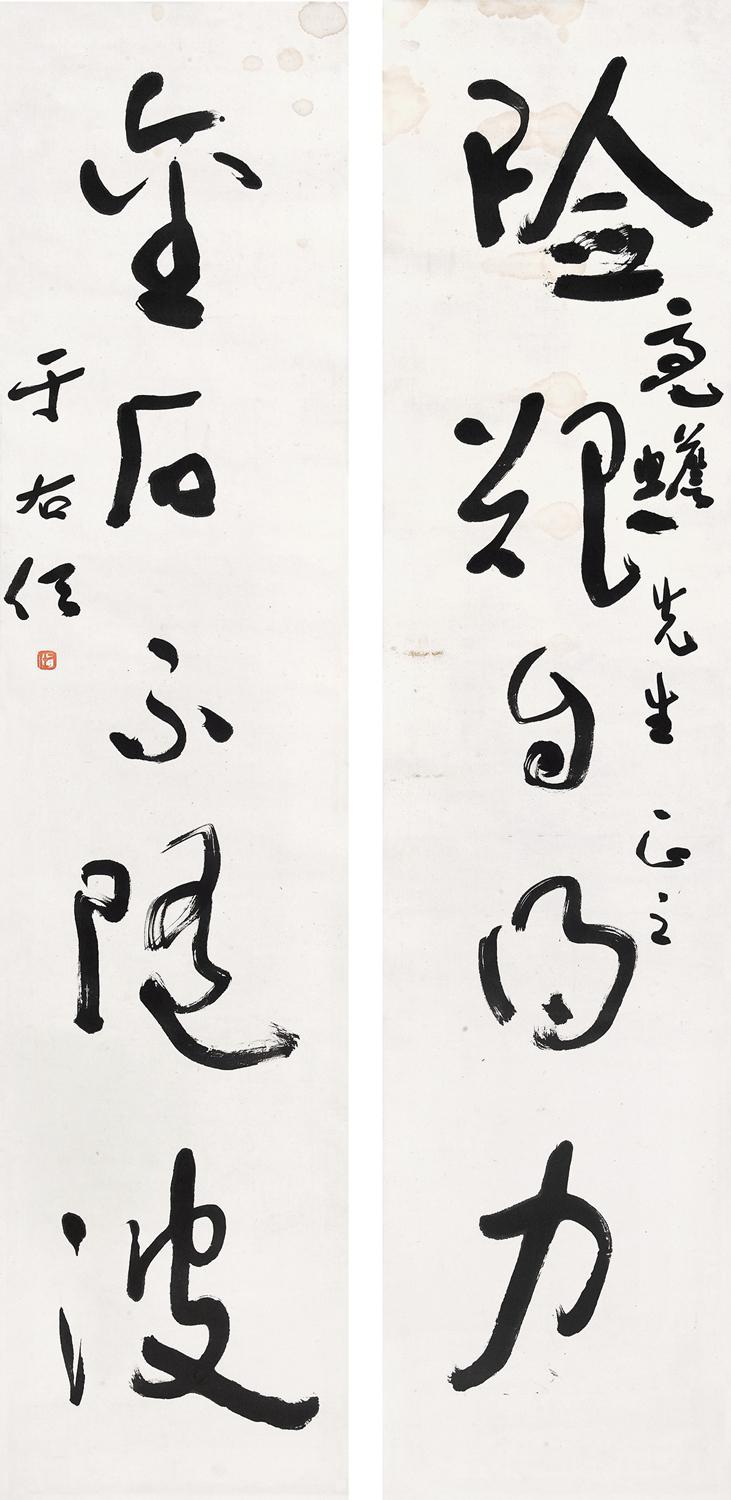 險艱自得力
亮蟾先生正之
金石不隨波
于右任